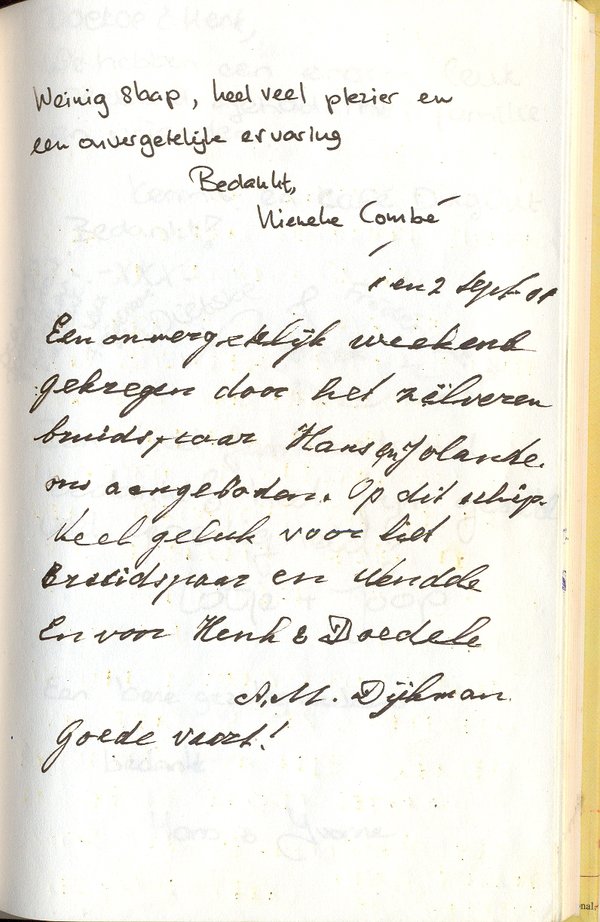 Weinig slaap, heel veel plezier en
een onvergetelijke ervaring
Bedankt,
Nieneke Combé
1 en 2 sept. 01
Een onvergetelijk weekend
gekregen door het zilveren
bruidspaar Hans en Jolande.
ons aangeboden. Op dit schip.
Veel geluk voor het
Bruidspaar en
En voor Henk & Doedele
A.M. Dijkman
Goede vaart!